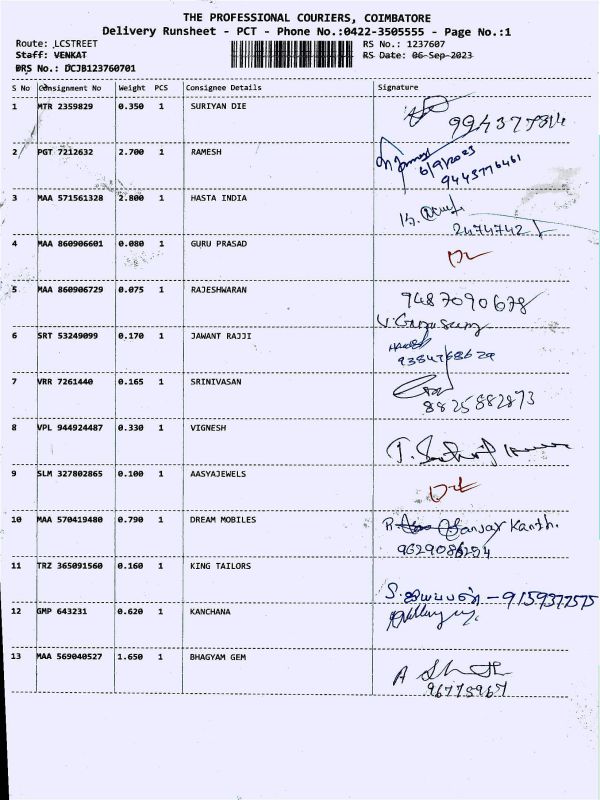 THE PROFESSIONAL COURIERS, COIMBATORE
Delivery Runsheet - PCT - Phone No.:0422-3505555 - Page No.:1
Route: LCSTREET
RS No.: 1237607
Staff: VENKAT
RS Date: 06-Sep-2023
DRS No.: DCJB123760701
S No Consignment No Weight PCS Consignee Details Signature
1 MTR 2359829 0.350 1 SURIYAN DIE
2 PGT 7212632 2.700 1 RAMESH
6/9/2023
9443776461
3 MAA 571561328 2.800 1 HASTA INDIA
2474742
4 MAA 860906601 0.080 1 GURU PRASAD
5 MAA 860906729 0.075 1 RAJESHWARAN
9487090678
6 SRT 53249099 0.170 1 JAWANT RAJJI
9384768629
7 VRR 7261440 0.165 1 SRINIVASAN
8825882873
8 VPL 944924487 0.330 1 VIGNESH
9 SLM 327802865 0.100 1 AASYAJEWELS
10 MAA 570419480 0.790 1 DREAM MOBILES
9629086254
11 TRZ 365091560 0.160 1 KING TAILORS
- 9159377575
12 GMP 643231 0.620 1 KANCHANA
13 MAA 569040527 1.650 1 BHAGYAM GEM